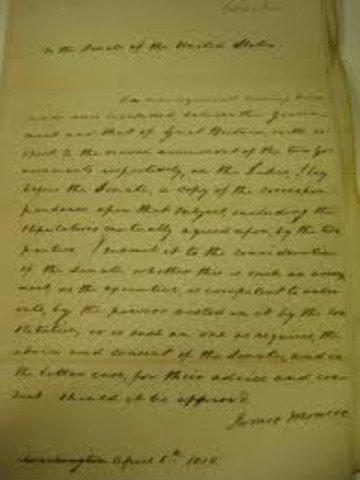 To the Senate of the United States
An arrangement having been
made and concluded between this Govern-
ment and that of Great Britain, with re
spect to the naval armament of the two Go
vernments respectively, on the Lakes, I lay
before the Senate, a copy of the correspon
pondence upon that subject, including the
stipulations mutually agreed upon, by the two
parties. I submit it to the consideration
of the Senate whether this is such an arrange
ment, as the executive, is competent to enter
into, by the powers vested in it by the Con
stitution, or is such an one as requires, the
advice and consent of the Senate, and in
the latter case, for their advice and con
sent should it be approv'd.
James Monroe
Washington April 6th 1818